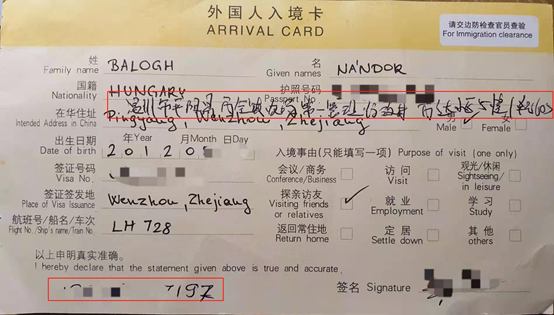 外国人入境卡
ARRIVAL CARD
请交边防检查官员查验
For Immigration clearance
姓
Family name BALOGH
名
Given names NÁNDOR
国籍
Nationality HUNGARY
护照号码
Passport No.
在华住址
Intended Address in China Pingyang, Wenzhou, Zhejiang
Male ✓ Female
出生日期
Date of birth
年Year 月Month 日Day
2012 0
入境事由(只能填写一项) Purpose of visit (one only)
签证号码
Visa No.
会议/商务
Conference/Business
访问
Visit
观光/休闲
Sightseeing/
in leisure
签证签发地
Place of Visa Issuance Wenzhou, Zhejiang
探亲访友
Visiting friends
or relatives ✓
就业
Employment
学习
Study
航班号/船名/车次
Flight No./Ship's name/Train No. LH 728
返回常住地
Return home
定居
Settle down
其他
others
以上申明真实准确。
I hereby declare that the statement given above is true and accurate.
7197
签名 Signature